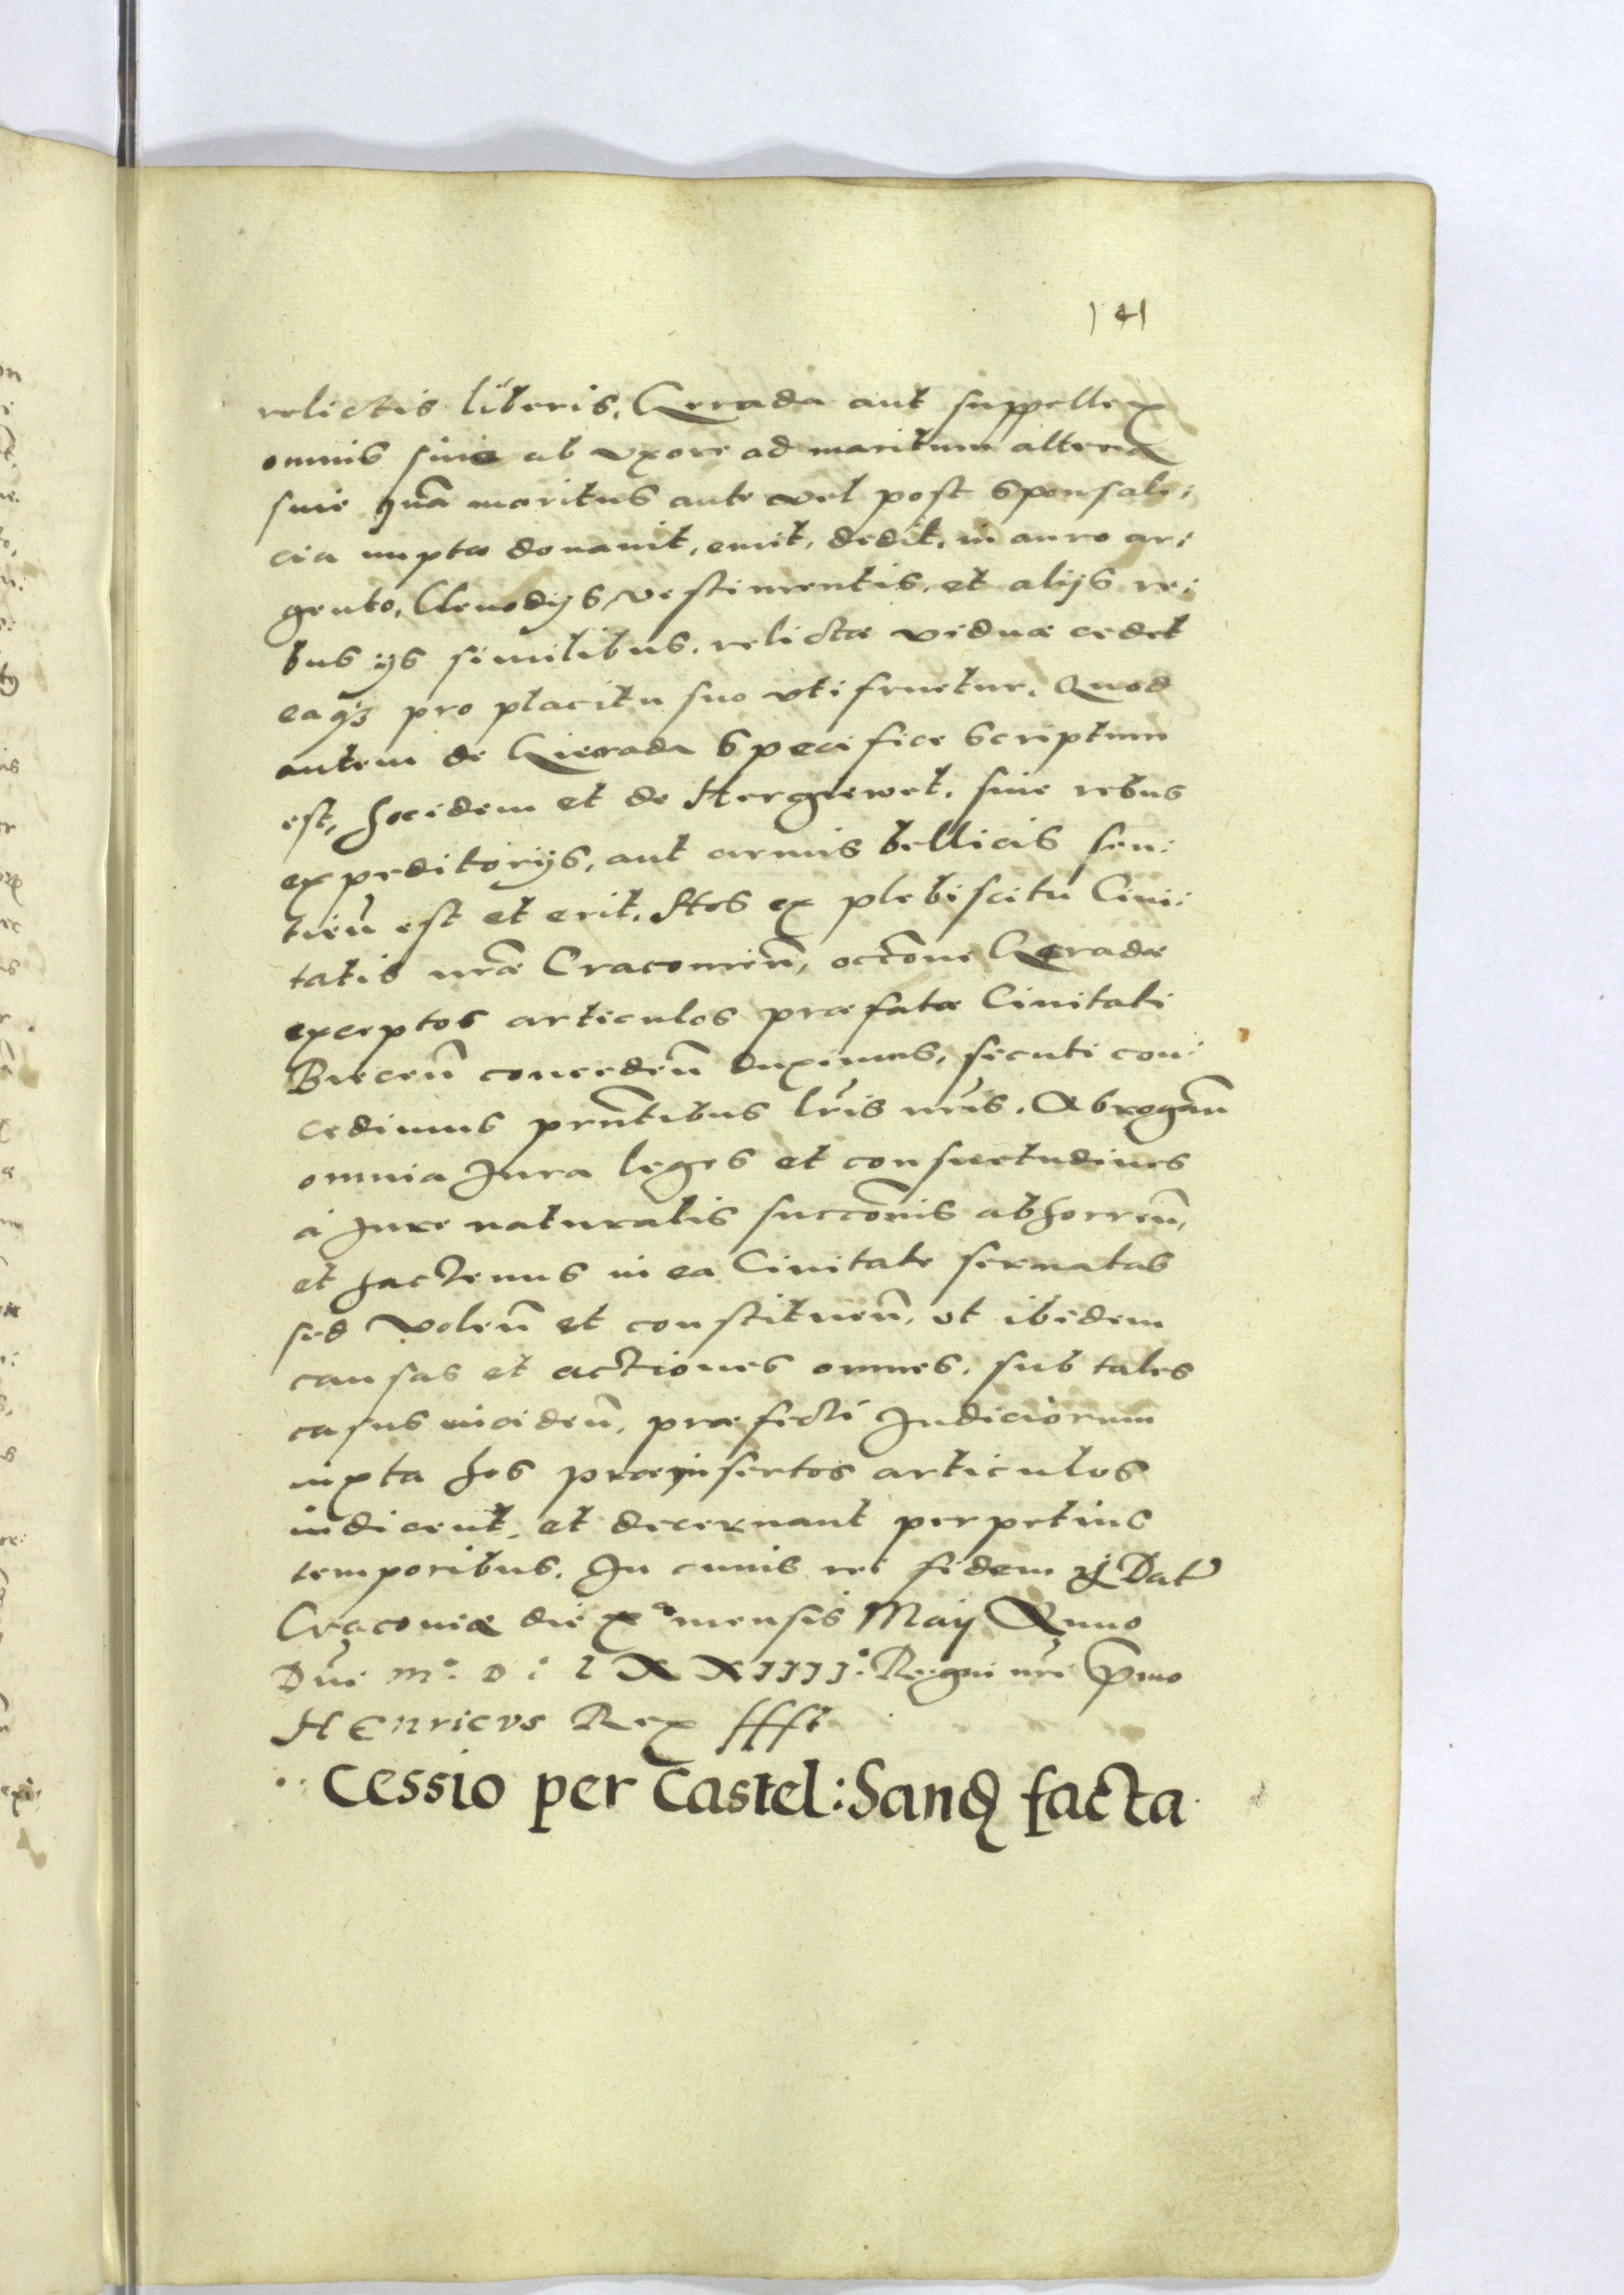 141
relictis liberis. Gerada aut suppellex
omnis siue ab vxore ad maritum allata
siue quã maritus ante vel post sponsali:
cia nuptæ donauit, emit, dedit, in auro ar:
gento, Clenodijs vestimentis, et alijs re:
bus ijs similibus, relictæ viduæ cedet
eaqȝ pro placitu suo vti fruetur. Quod
autem de Gierada specifice scriptum
est, hocidem et de Hergiewet, siue rebus
expeditorijs, aut armis bellicis sen:
tieñ est et erit. Hos ex plebiscitu Ciui:
tatis nr̃æ Cracouieñ, occõne Geradæ
exceptos articulos præfatæ Ciuitati
Bieceñ concedeñ duximus, sicuti con:
cedimus prñtibus lr̃is nr̃is. Abrogañ
omnia Jura leges et consuetudines
à Jure naturalis succõnis abhorreñ,
et hactenus in ea Ciuitate seruatas
sed voleñ et constitueñ, vt ibidem
causas et actiones omnes, sub tales
casus incideñ, præfecti Judiciorum
iuxta hos præinsertos articulos
iudicent, et decernant perpetuis
temporibus. In cuius rei fidem ꝛc Dat
Cracouiæ die xª mensis Maij Anno
Dñi Mº. D: LXXIIIIº. Regni nr̃i Pr̃mo
Henricvs Rex ssst
Cessio per Castel: Sand facta